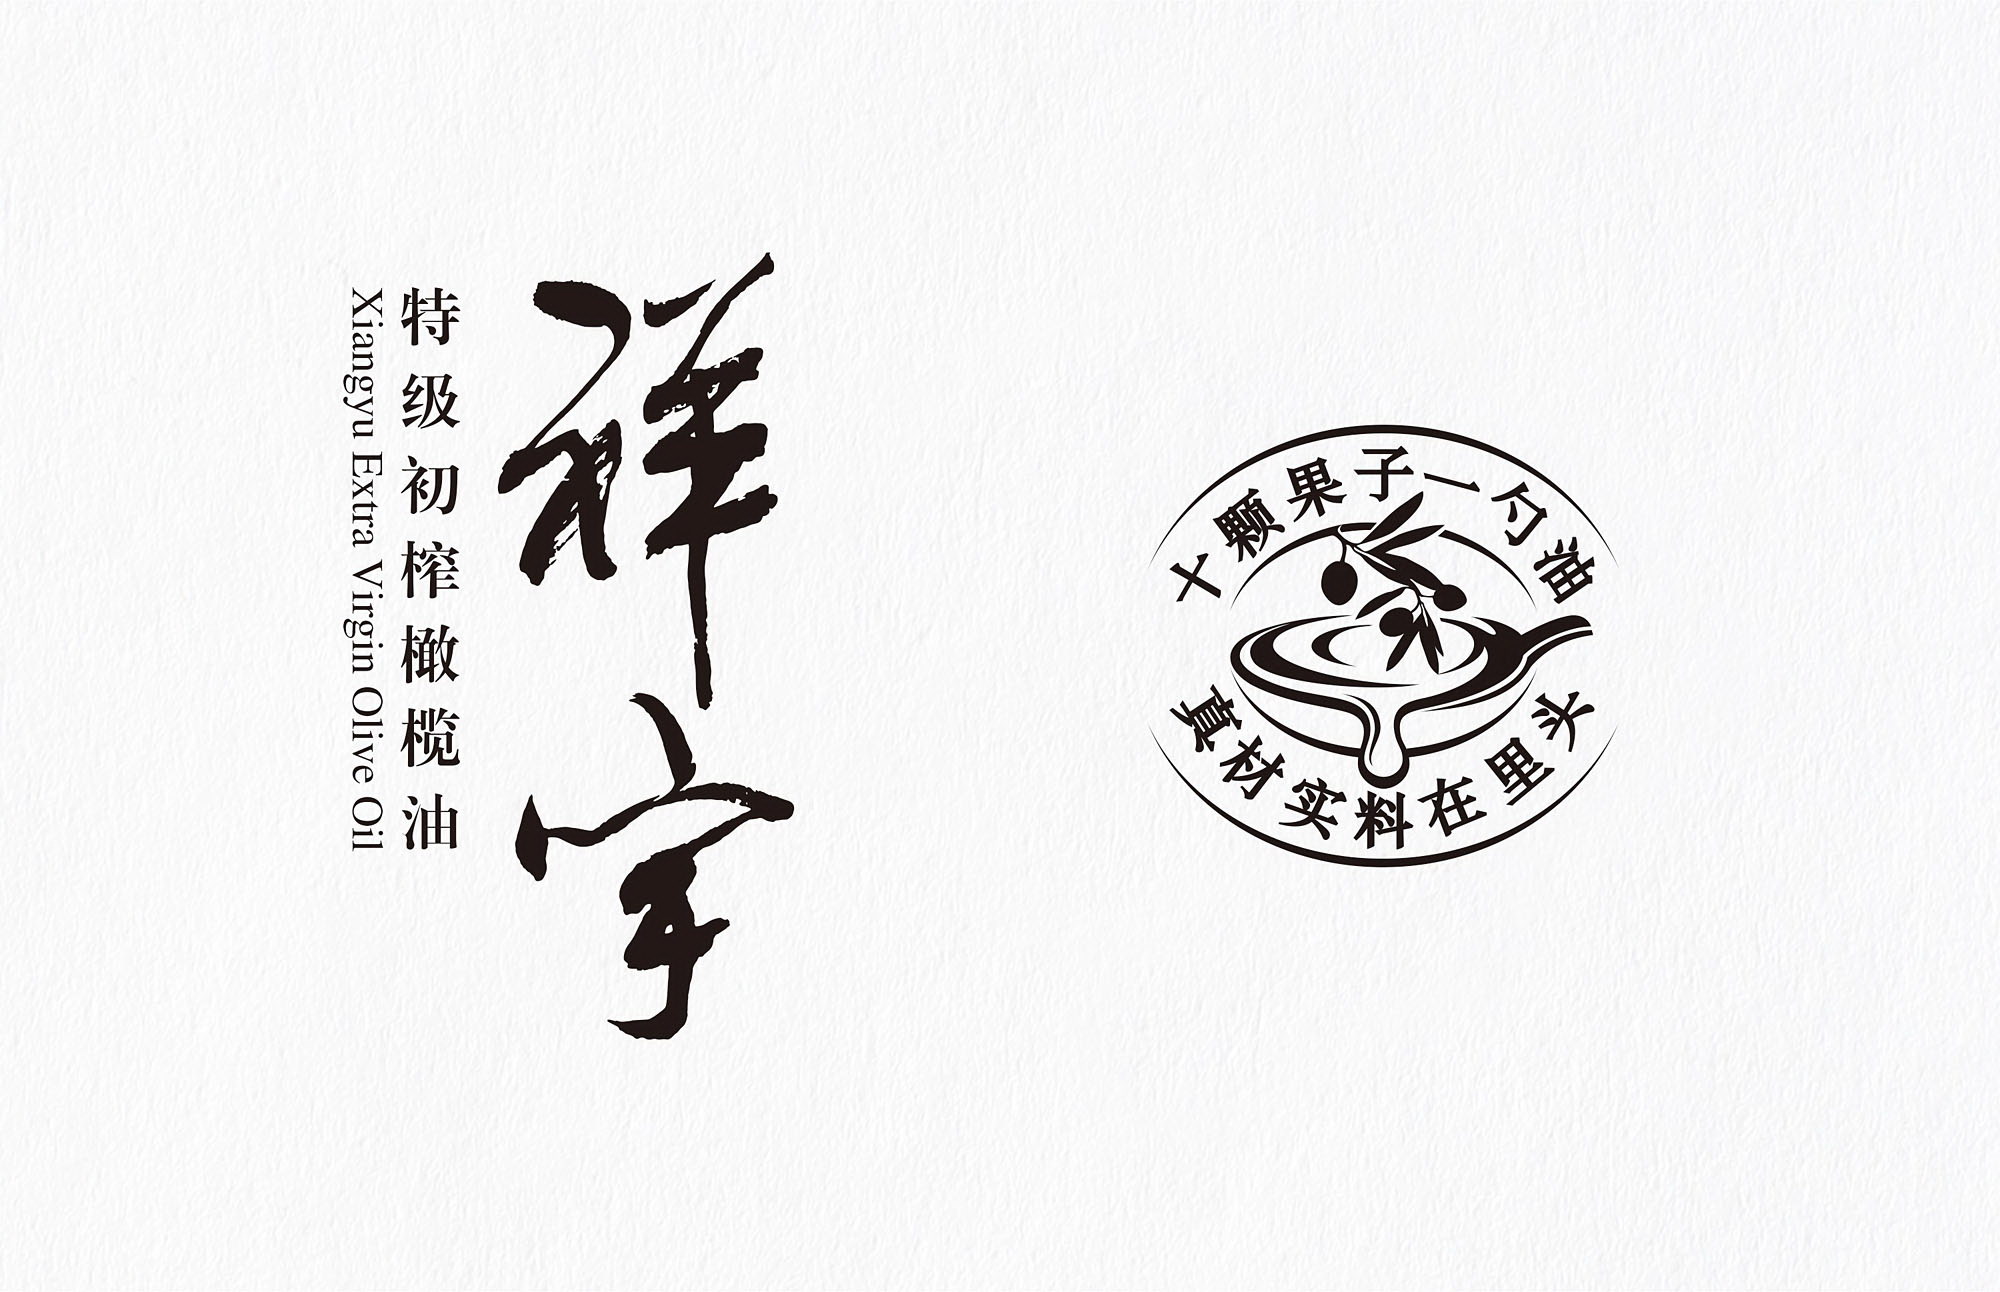 祥宇
特级初榨橄榄油
Xiangyu Extra Virgin Olive Oil
十颗果子一勺油
真材实料在里头